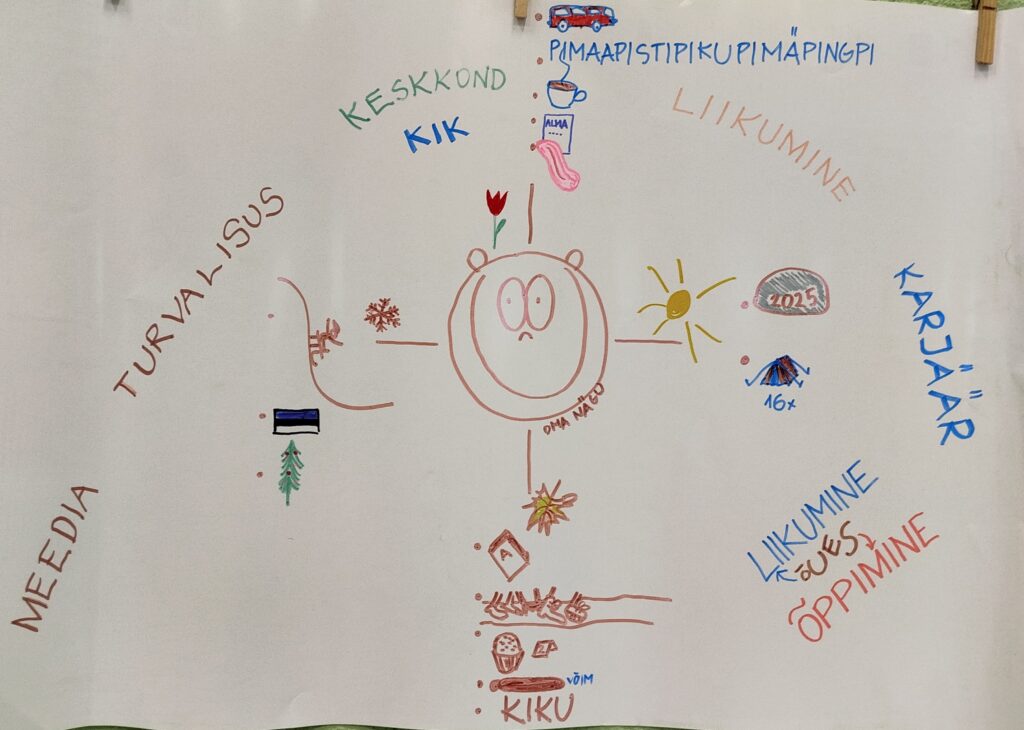 PIMAAPISTIPIKUPIMÄPINGPI
KESKKOND
KIK
LIIKUMINE
ALMA
TURVALISUS
2025
KARJÄÄR
16x
OMA NÄGU
MEEDIA
LIIKUMINE
ÕUES
ÕPPIMINE
A
VÕIM
KIKU